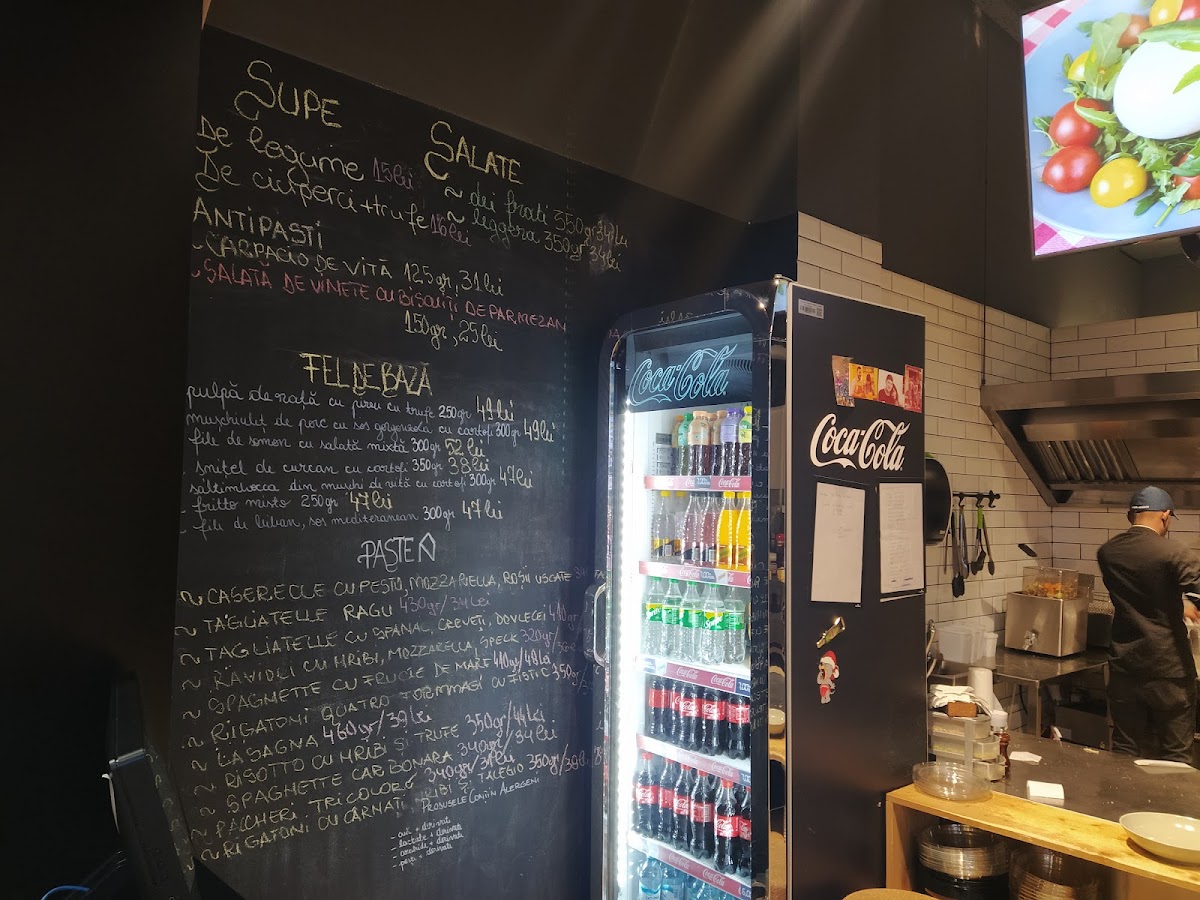 SUPE
De legume 15lei
De ciuperci+trufe 16lei
SALATE
~ dei frati 350gr 34lei
~ leggera 350gr 34lei
ANTIPASTI
~ CARPACIO DE VITĂ 125gr, 31lei
~ SALATA DE VINETE CU BISCUIȚI DE PARMEZAN
150gr, 25lei
FEL DE BAZĂ
pulpă de rață cu pireu cu trufe 250gr 49lei
mușchiuleț de porc cu sos gorgonzola cu cartofi 300gr 49lei
file de somon cu salată mixtă 300gr 52lei
șnițel de curcan cu cartofi 350gr 38lei
saltimbocca din mușchi de vită cu cartofi 300gr 47lei
fritto misto 250gr 47lei
- file de luban, sos mediteranean 300gr 47lei
PASTE
~ CASERECLE CU PESTO, MOZZARELLA, ROȘII USCATE
~ TAGLIATELLE RAGU 430gr/34lei
~ TAGLIATELLE CU SPANAC, CREVEȚI, DOVLECEI
~ RAVIOLI CU HRIBI, MOZZARELLA, SPECK 320gr
~ SPAGHETTE CU FRUCTE DE MARE 410gr/48lei
~ RIGATONI QUATRO FORMMAGI CU FISTIC 350gr
~ LASAGNA 460gr/39lei
~ RISOTTO CU HRIBI ȘI TRUFE 350gr/44lei
~ SPAGHETTE CARBONARA 340gr/34lei
~ PACHERI TRICOLORE 340gr/31lei
~ RIGATONI CU CÂRNAȚI, HRIBI ȘI TALEGIO 350gr/38lei
PRODUSELE CONȚIN ALERGENI
- ouă + derivate
- lactate + derivate
- cereale + derivate
- pește + derivate
Coca-Cola
Coca-Cola